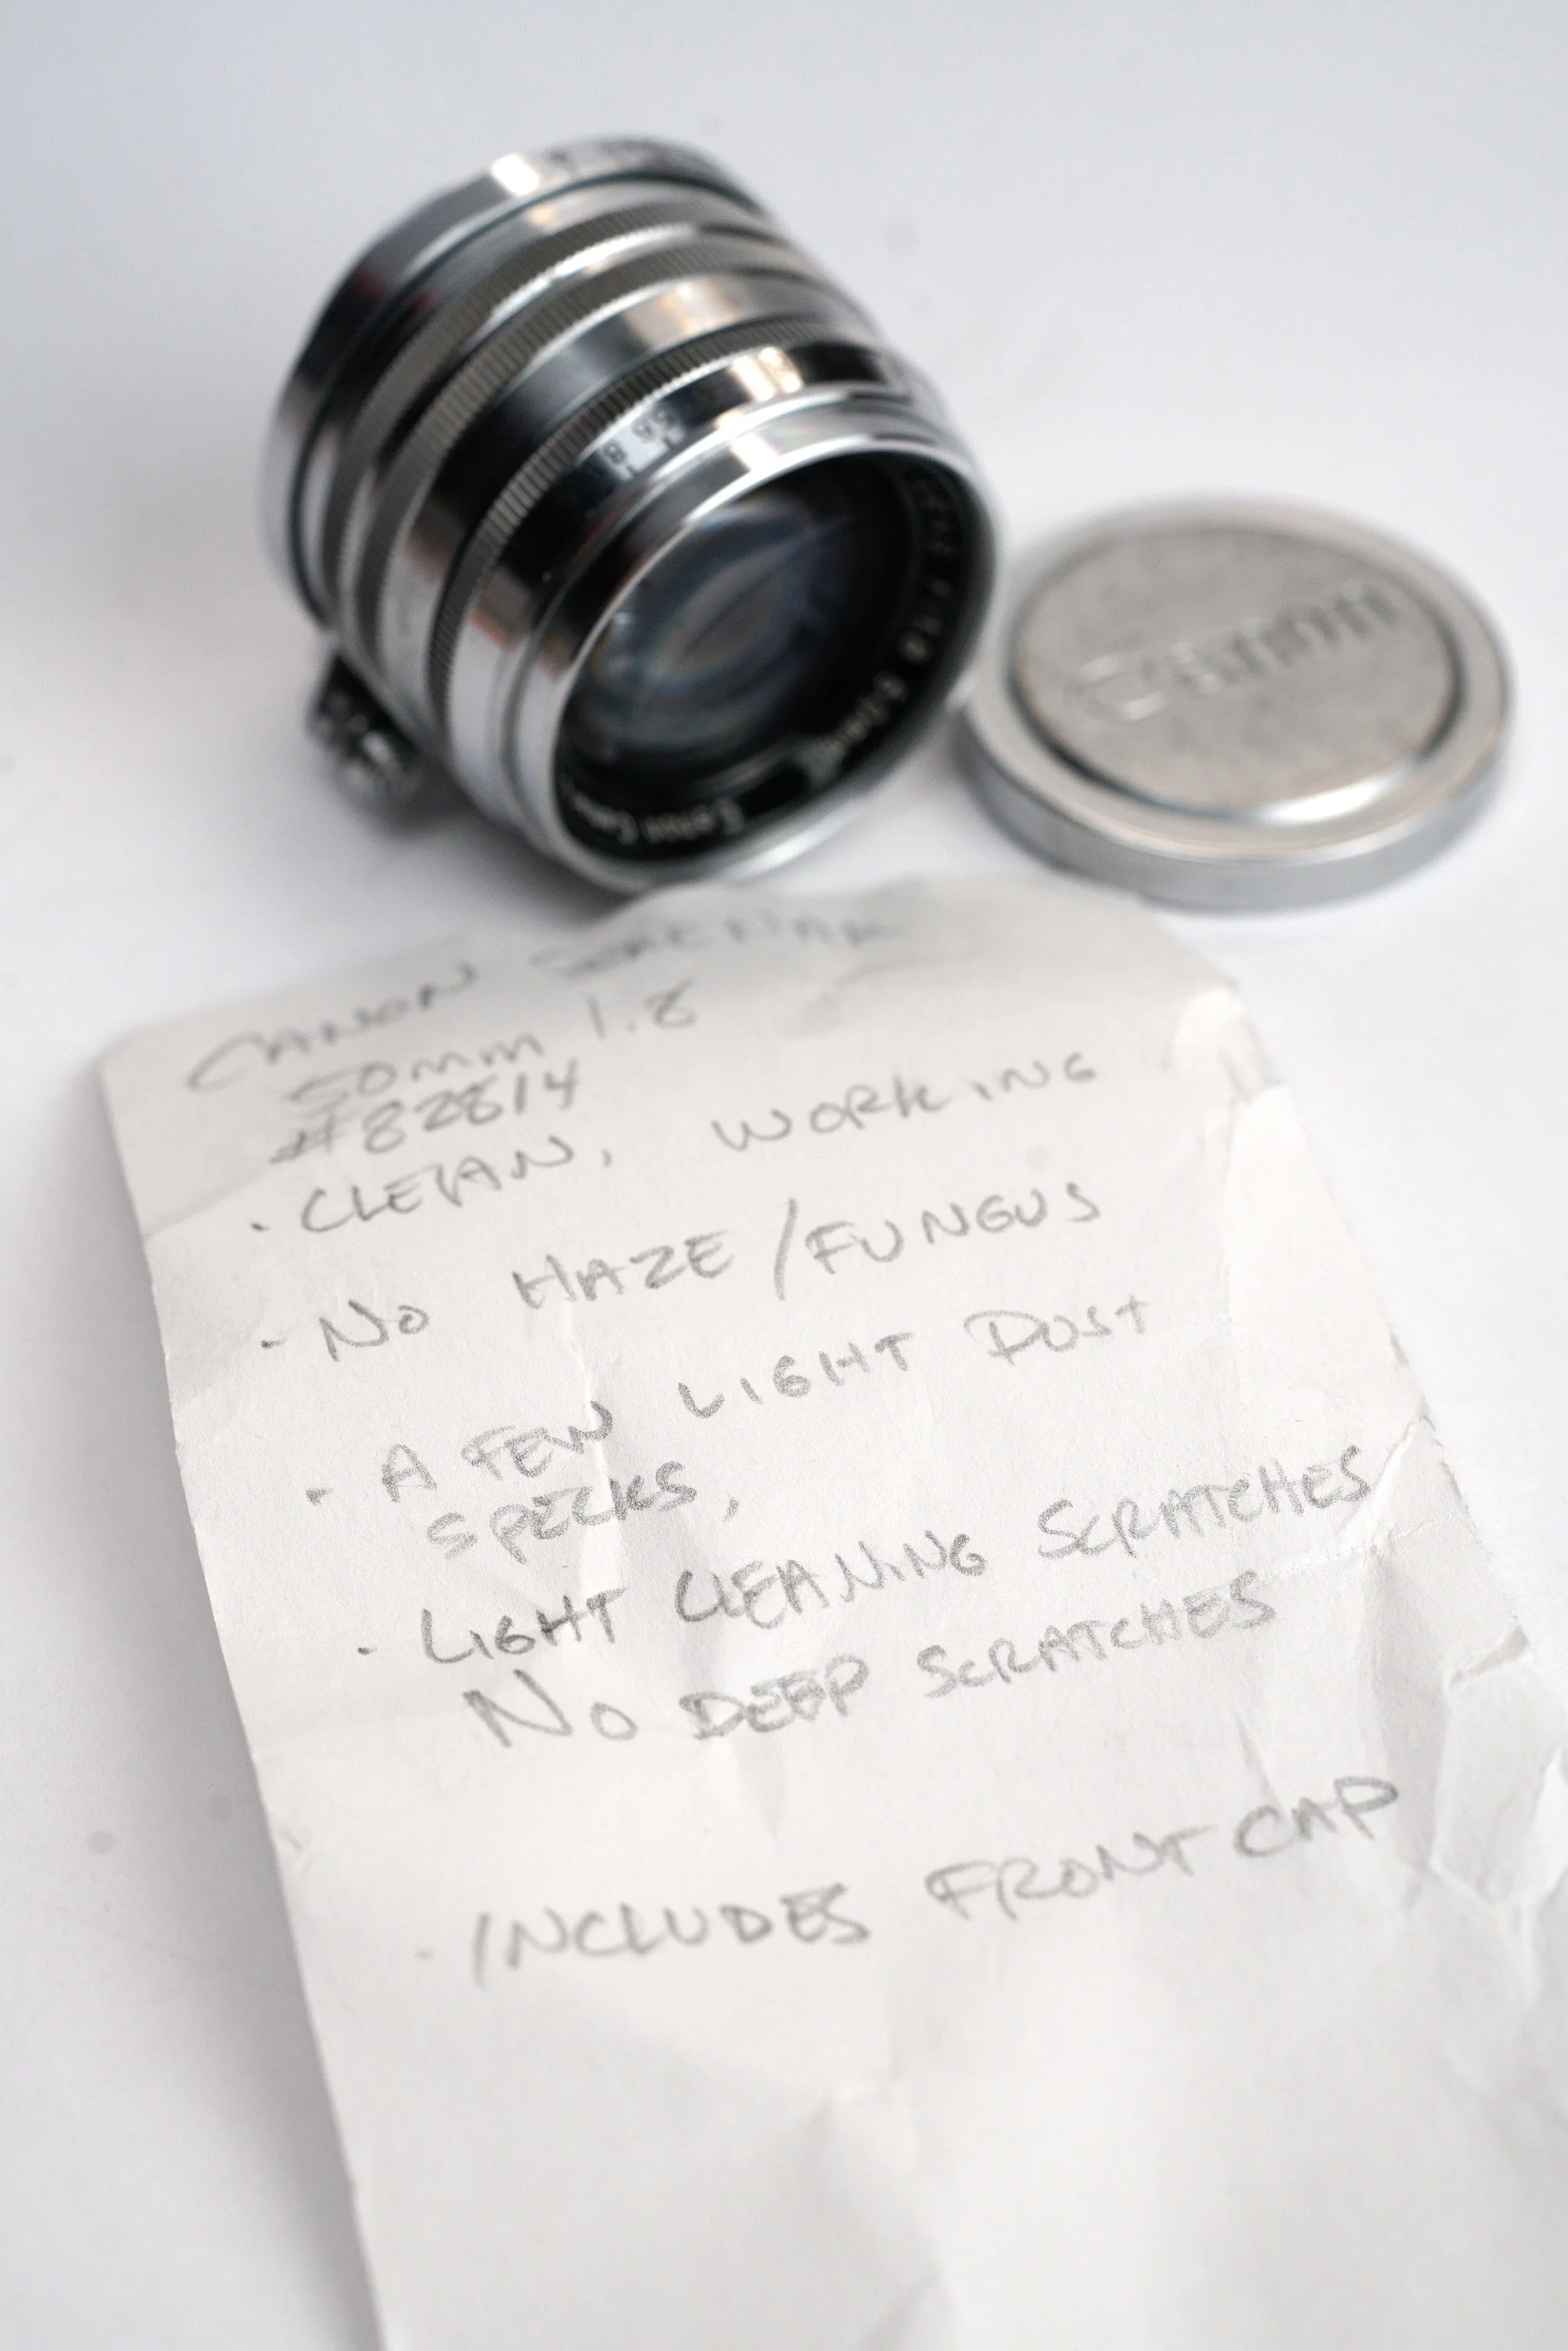 8 5.6
f:1.8 50mm
Canon
CANON SERENAR
50mm 1.8
#82814
· CLEAN, WORKING
- NO HAZE/FUNGUS
- A FEW LIGHT DUST
SPECKS,
· LIGHT CLEANING SCRATCHES
NO DEEP SCRATCHES
- INCLUDES FRONT CAP